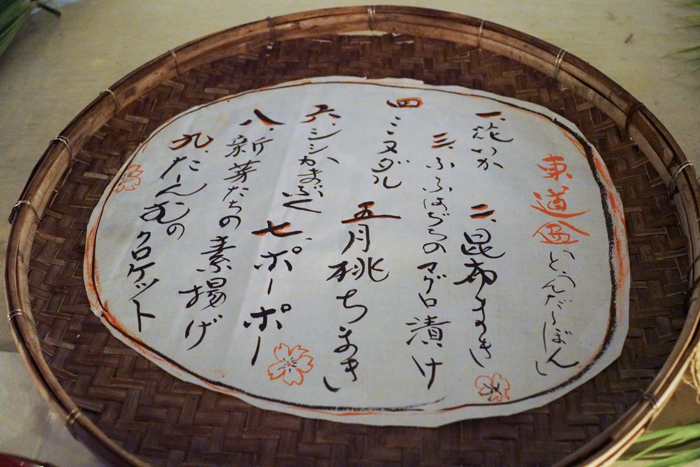 東道盆 とぅんだーぼん
一、花いか
二、昆布まき
三、ふふはだらのマグロ漬け
四 ミヌダル
五 月桃ちまき
六 シシかまぶく
七、ポーポー
八、新芽たちの素揚げ
九 たーんむのクロケット